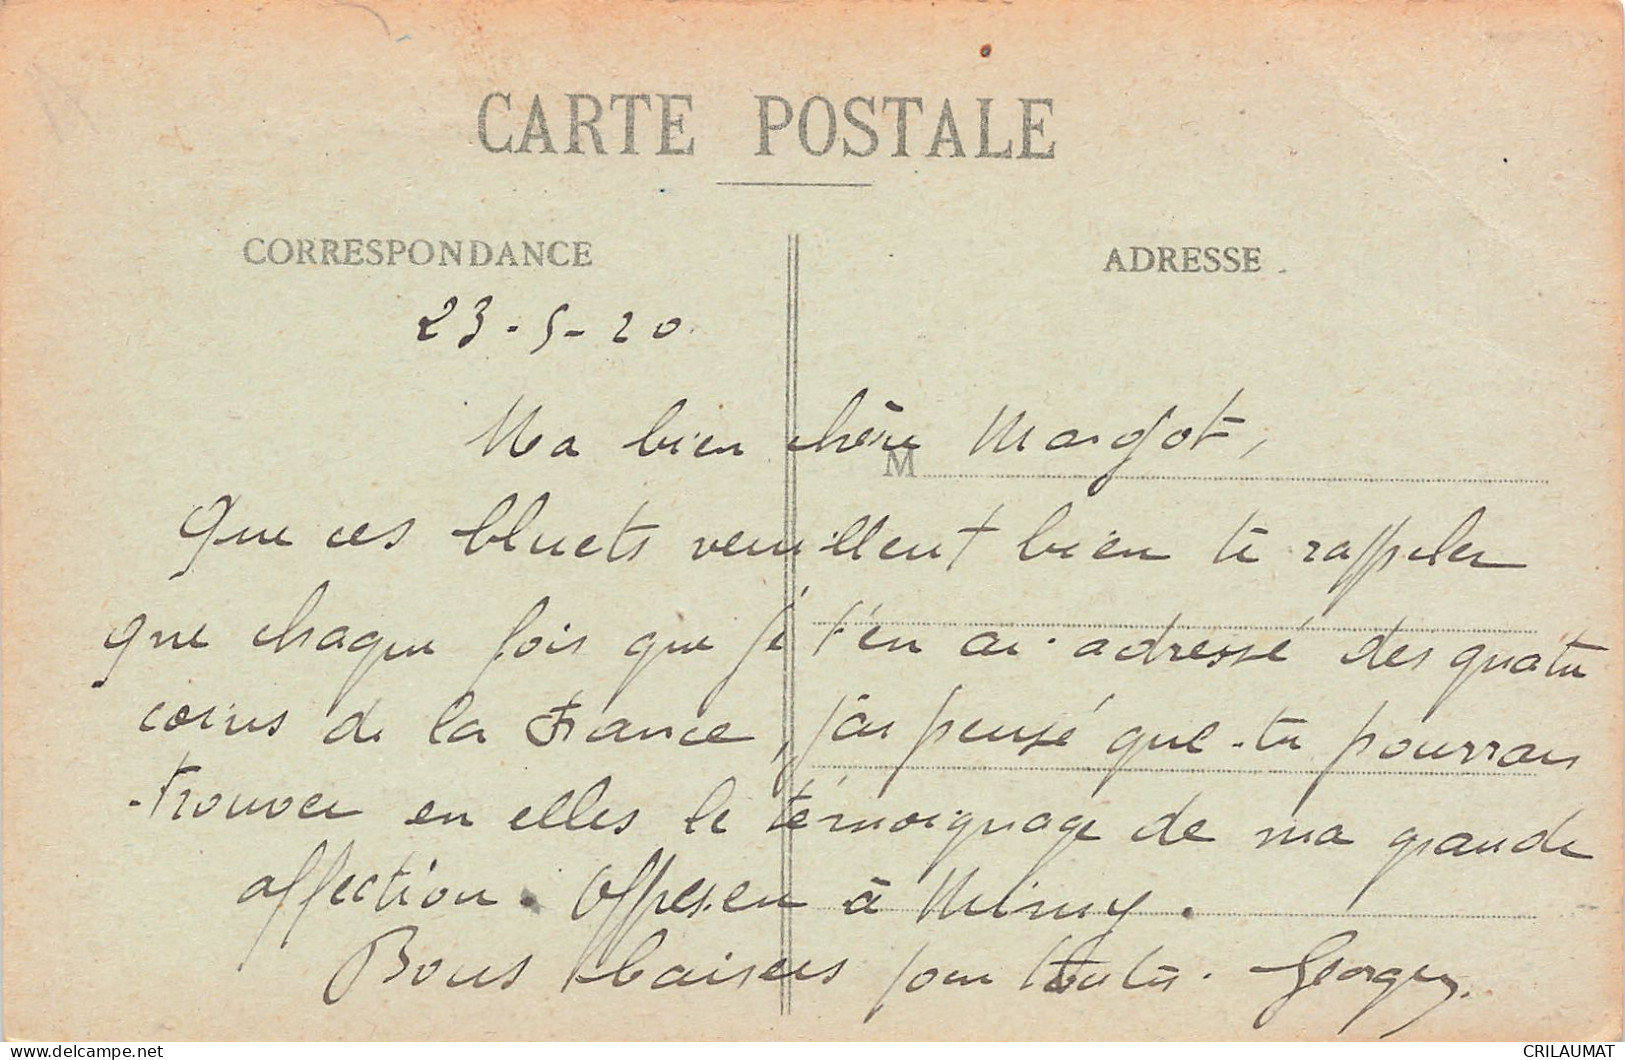 CARTE POSTALE
CORRESPONDANCE
ADRESSE
23-5-20.
Ma bien chère Margot,
M
Que ces bluets veuillent bien te rappeler
que chaque fois que je t'en ai adressé des quatre
coins de la France, j'ai pensé que tu pourrais
trouver en elles le témoignage de ma grande
affection. Offres-en à Mimy.
Bons baisers pour toutes. Georges.
delcampe.net
CRILAUMAT